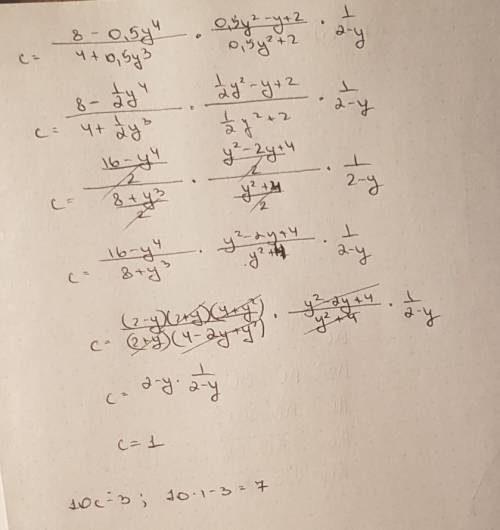 c = (8 - 0,5y⁴)/(4 + 0,5y³) · (0,5y² - y + 2)/(0,5y² + 2) · 1/(2-y)
c = (8 - 1/2y⁴)/(4 + 1/2y³) · (1/2y² - y + 2)/(1/2y² + 2) · 1/(2-y)
c = ((16 - y⁴)/2)/((8 + y³)/2) · ((y² - 2y + 4)/2)/((y² + 4)/2) · 1/(2-y)
c = (16 - y⁴)/(8 + y³) · (y² - 2y + 4)/(y² + 4) · 1/(2-y)
c = (2-y)(2+y)(4+y²)/(2+y)(4 - 2y + y²) · (y² - 2y + 4)/(y² + 4) · 1/(2-y)
c = 2-y · 1/(2-y)
c = 1
10c - 3 ; 10 · 1 - 3 = 7